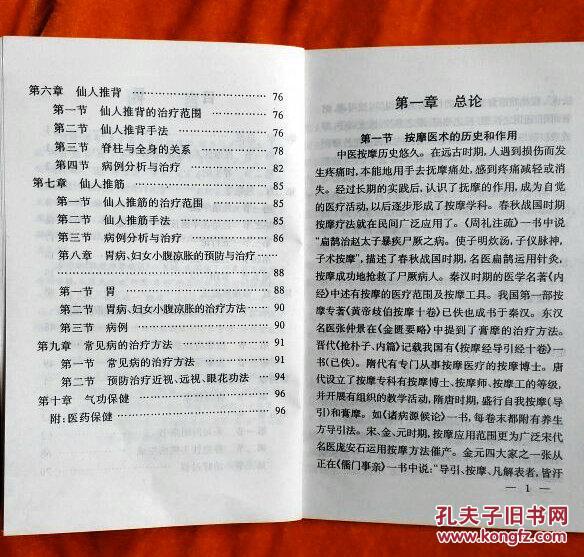 第六章 仙人推背 …………………… 76
第一节 仙人推背的治疗范围 …………… 76
第二节 仙人推背手法 …………………… 76
第三节 脊柱与全身的关系 ……………… 78
第四节 病例分析与治疗 ………………… 82
第七章 仙人推筋 …………………… 85
第一节 仙人推筋的治疗范围 …………… 85
第二节 仙人推筋手法 …………………… 85
第三节 病例分析与治疗 ………………… 86
第八章 胃病、妇女小腹凉胀的预防与治疗 ……
…………………… 88
第一节 胃 …………………… 88
第二节 胃病、妇女小腹凉胀的治疗方法 …… 90
第三节 病例 …………………… 90
第九章 常见病的治疗方法 …………………… 91
第一节 常见病的治疗方法 …………… 91
第二节 预防治疗近视、远视、眼花功法 …… 94
第十章 气功保健 …………………… 96
附:医药保健 …………………… 96
第一章 总论
第一节 按摩医术的历史和作用
中医按摩历史悠久。在远古时期,人遇到损伤而发
生疼痛时,本能地用手去抚摩痛处,感到疼痛减轻或消
失。经过长期的实践后,认识了抚摩的作用,成为自觉
的医疗活动,以后逐步形成了按摩学科。春秋战国时期
按摩疗法就在民间广泛应用了。《周礼注疏》一书中说
“扁鹊治赵太子暴疾尸厥之病。使子明炊汤,子仪脉神,
子术按摩”,描述了春秋战国时期,名医扁鹊运用针灸、
按摩成功地抢救了尸厥病人。秦汉时期的医学名著《内
经》中述有按摩的医疗范围及按摩工具。我国第一部按
摩专著《黄帝歧伯按摩十卷》已佚也成书于秦汉。东汉
名医张仲景在《金匮要略》中提到了膏摩的治疗方法。
晋代《抢朴子、内篇》记载我国有《按摩经导引经十卷》一
书(已佚)。隋代有专门从事按摩医疗的按摩博士。唐
代设立了按摩专科有按摩博士、按摩师、按摩工的等级,
并开展有组织的教学活动,隋唐时期,盛行自我按摩(导
引)和膏摩。如《诸病源候论》一书,每卷末都附有养生
方导引法。宋、金、元时期,按摩应用范围更为广泛宋代
名医庞安石运用按摩方法催产。金元四大家之一张从
正在《儒门事亲》一书中说:“导引、按摩、凡解表者,皆汗
— 1 —
孔夫子旧书网